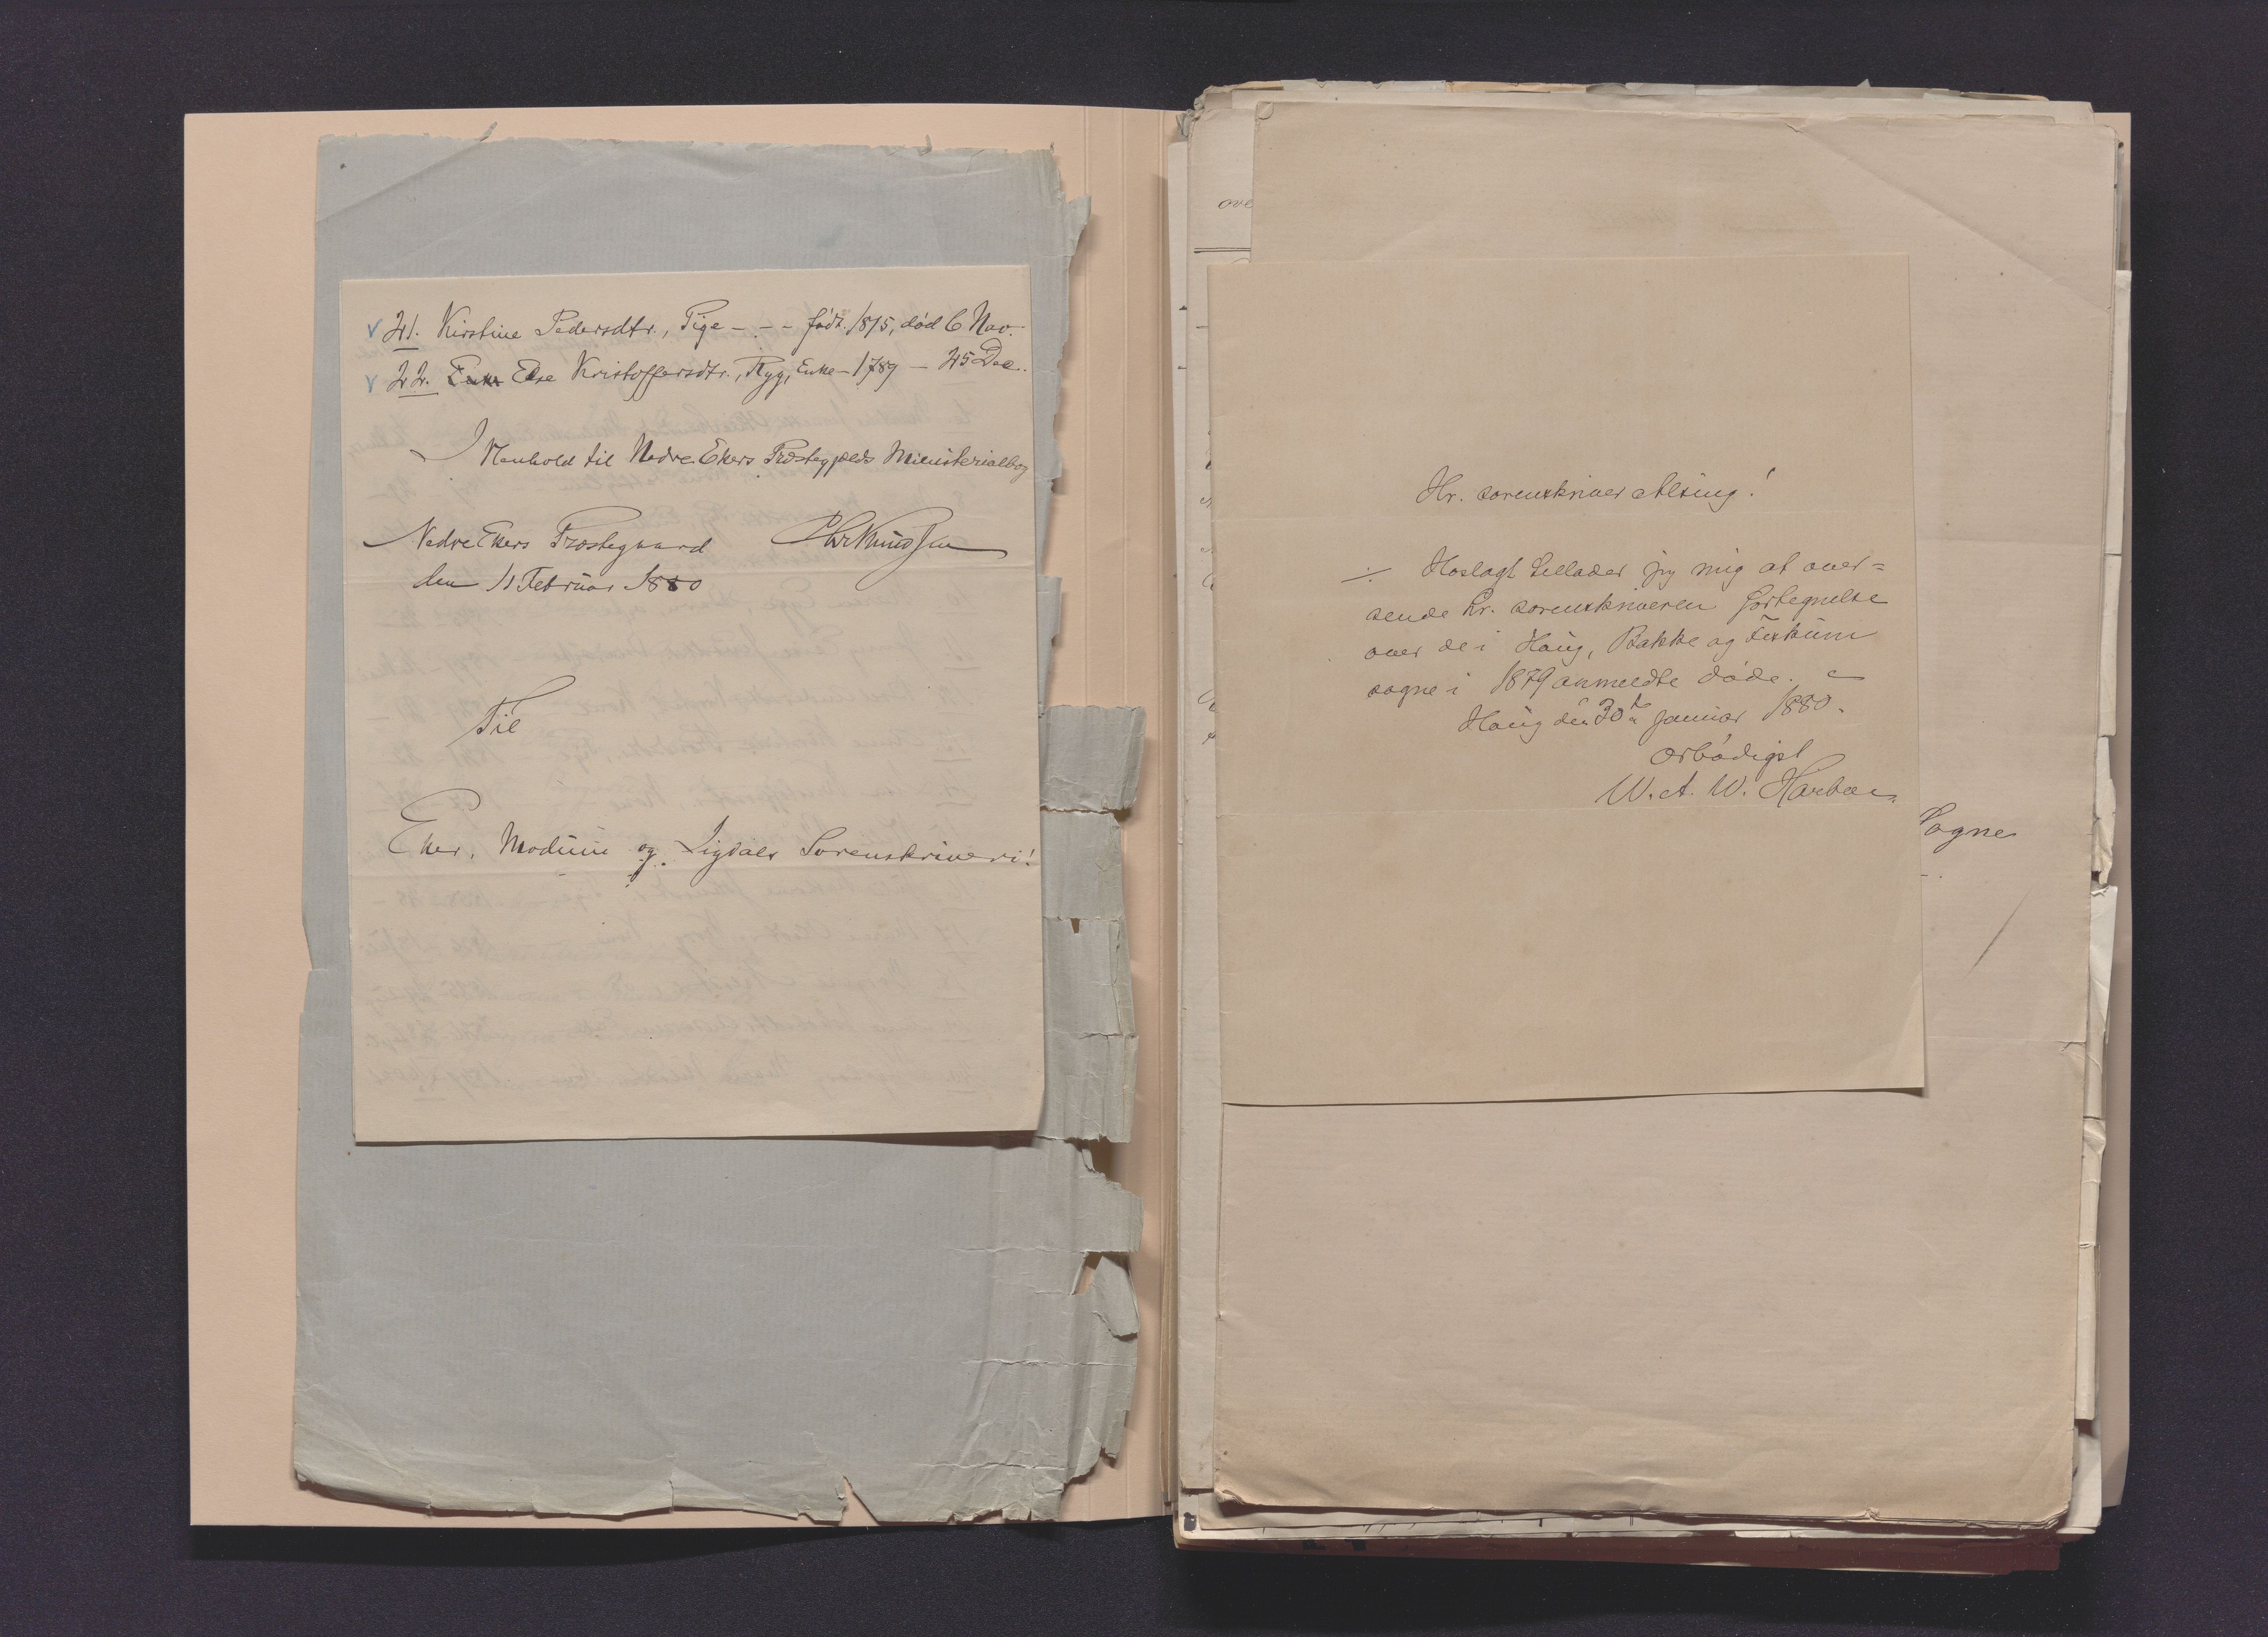 21. Kirstine Pedersdtr., Pige - - - født 1875, død 6 Nov.
22. Else Kristoffersdtr., Ryg, Enke - 1789 - 25 Dec.
I Henhold til Nedre Ekers Præstegjælds Ministerialbog
Nedre Ekers Præstegaard Chr Knudsen
den 11 Februar 1880
Til
Eker, Modum og Sigdals Sorenskriveri!
ove
Hr. sorenskriver Alsing!
÷ Hoslagt tillader jeg mig at over=
sende hr. sorenskriveren fortegnelse
over de i Haug, Bakke og Fiskum
sogne i 1879 anmeldte døde.
Haug den 30te januar 1880.
ærbødigst
W. A. W. Harboe
Sogne